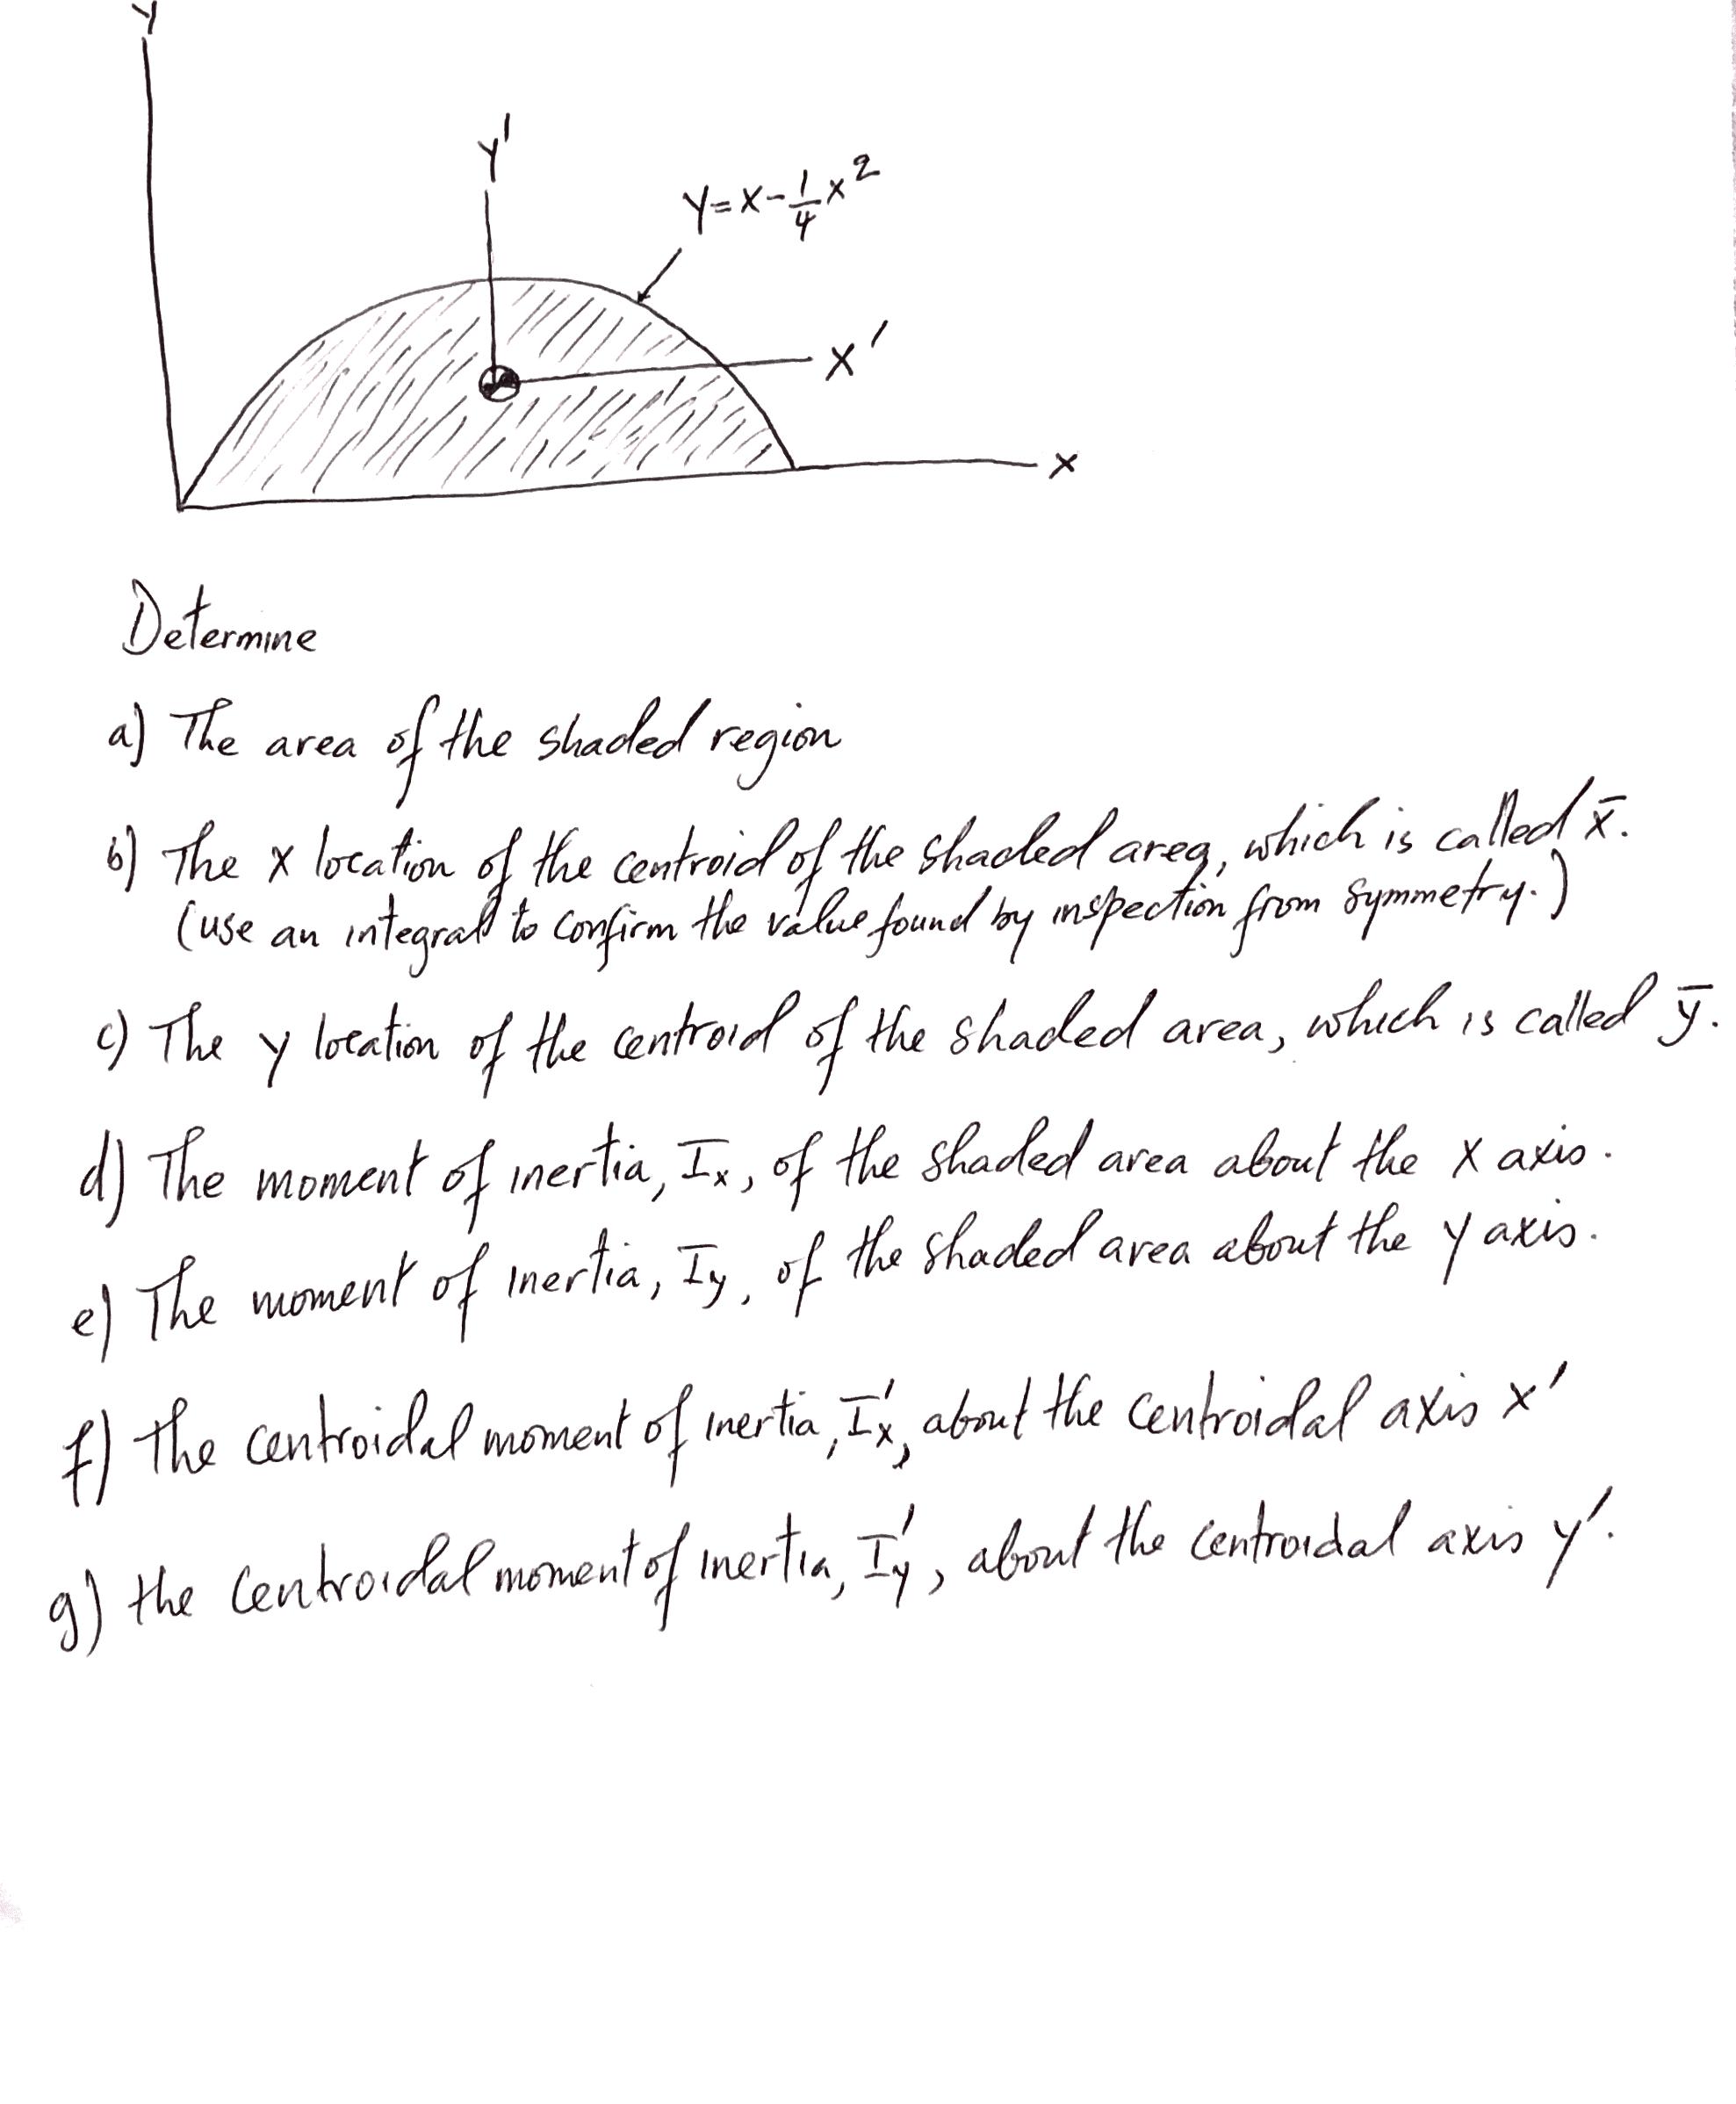 Y
Y'
y = x - 1/4 x²
X'
X
Determine
a) The area of the shaded region
b) The x location of the centroid of the shaded area, which is called x̄.
(use an integral to confirm the value found by inspection from symmetry.)
c) The y location of the centroid of the shaded area, which is called ȳ.
d) The moment of inertia, Ix, of the shaded area about the x axis.
e) The moment of inertia, Iy, of the shaded area about the y axis.
f) The centroidal moment of inertia, I'x, about the centroidal axis x'
g) the centroidal moment of inertia, I'y, about the centroidal axis y'.